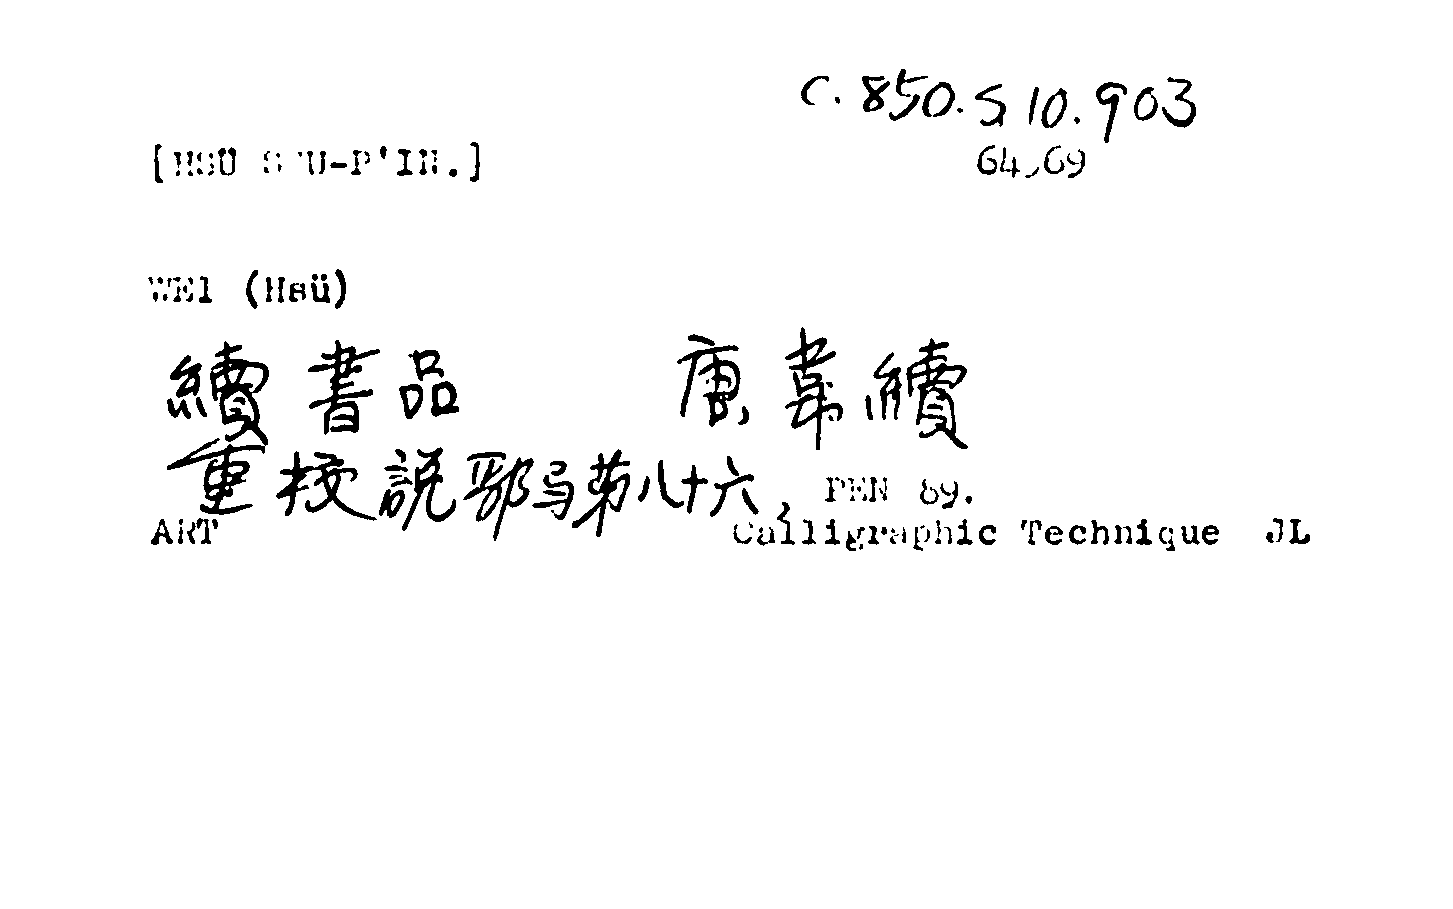 C. 850. S 10. 903
[HSÜ SHU-P'IN.]
64.69
WEI (Hsü)
續書品 唐韋續
重校說郛弓第八十六, PEN 89.
ART Calligraphic Technique JL